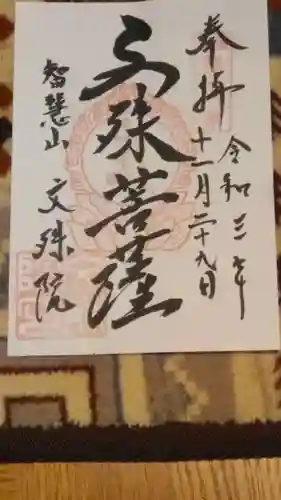 奉拝
令和三年
十一月二十九日
文殊菩薩
智慧山 文殊院